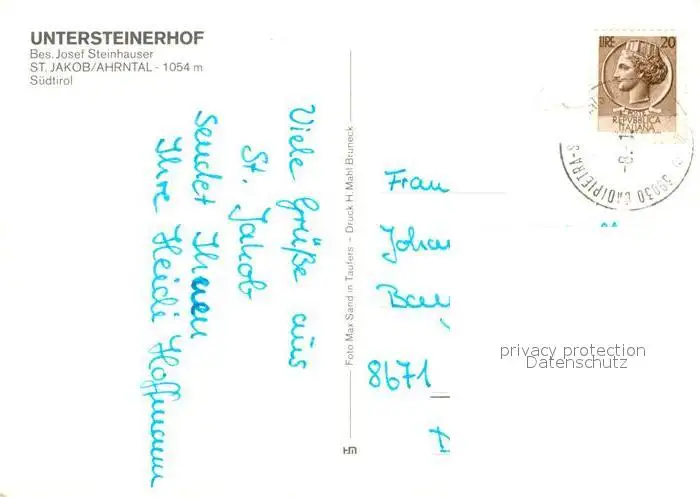 UNTERSTEINERHOF
Bes. Josef Steinhauser
ST. JAKOB/AHRNTAL - 1054 m
Südtirol
Viele Grüße aus
St. Jakob
sendet Ihnen
Ihre Heidi Hoffmann
Foto Max Sand in Taufers – Druck H. Mahl Bruneck
LIRE 20
REPVBBLICA
ITALIANA
-8.-1
39030
Frau
Johan
Bau
8671
privacy protection
Datenschutz